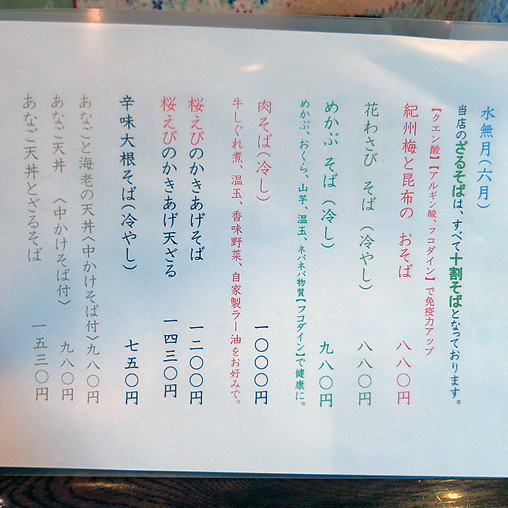 水無月(六月)
当店のざるそばは、すべて十割そばとなっております。
【クエン酸】【アルギン酸、フコダイン】で免疫力アップ
紀州梅と昆布の おそば 八八〇円
花わさび そば (冷やし) 八八〇円
めかぶ そば (冷し) 九八〇円
めかぶ、おくら、山芋、温玉、ネバネバ物質【フコダイン】で健康に。
肉そば(冷し) 一〇〇〇円
牛しぐれ煮、温玉、香味野菜、自家製ラー油をお好みで。
桜えびのかきあげそば 一二〇〇円
桜えびのかきあげ天ざる 一四三〇円
辛味大根そば(冷やし) 七五〇円
あなごと海老の天丼(中かけそば付)九八〇円
あなご天丼 (中かけそば付) 九八〇円
あなご天丼とざるそば 一五三〇円